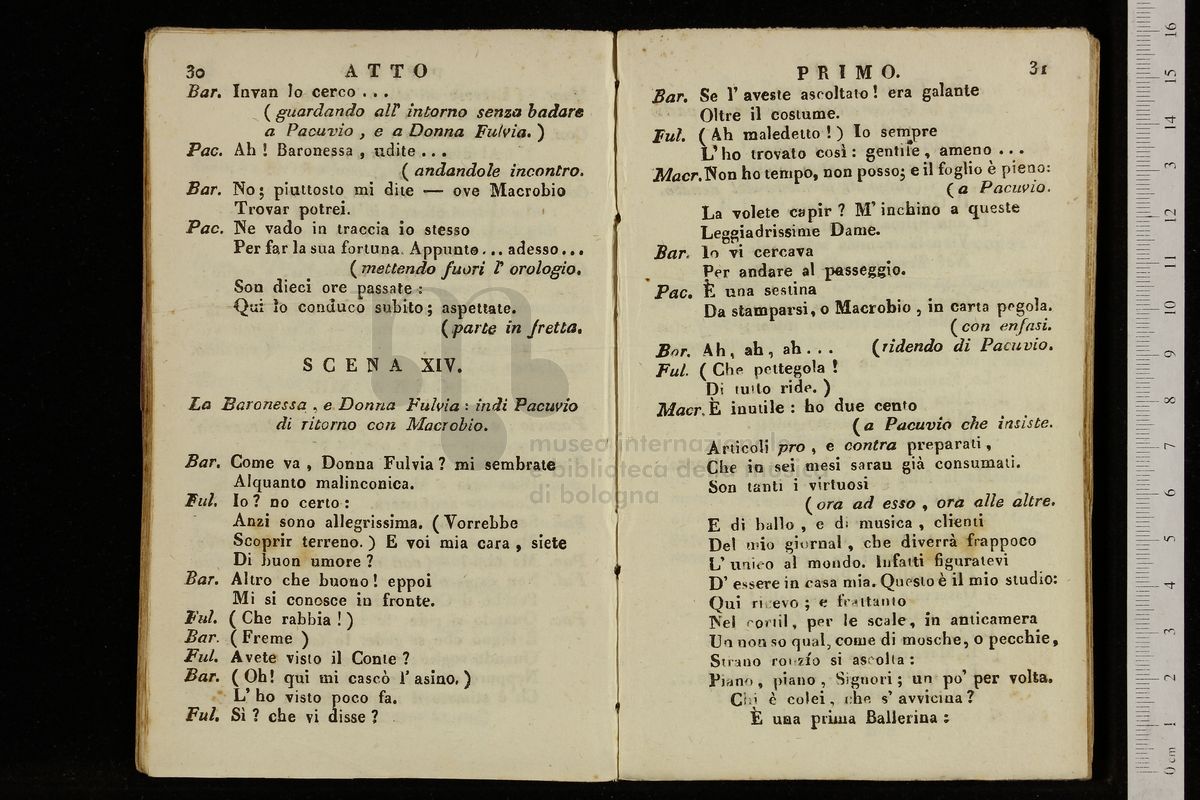 30 ATTO
Bar. Invan lo cerco . . .
( guardando all' intorno senza badare
a Pacuvio , e a Donna Fulvia. )
Pac. Ah ! Baronessa , udite . . .
( andandole incontro.
Bar. No ; piuttosto mi dite — ove Macrobio
Trovar potrei.
Pac. Ne vado in traccia io stesso
Per far la sua fortuna. Appunto . . . adesso . . .
( mettendo fuori l' orologio.
Son dieci ore passate :
Qui lo conduco subito ; aspettate.
( parte in fretta.
SCENA XIV.
La Baronessa , e Donna Fulvia : indi Pacuvio
di ritorno con Macrobio.
Bar. Come va , Donna Fulvia ? mi sembrate
Alquanto malinconica.
Ful. Io ? no certo :
Anzi sono allegrissima. ( Vorrebbe
Scoprir terreno. ) E voi mia cara , siete
Di buon umore ?
Bar. Altro che buono ! eppoi
Mi si conosce in fronte.
Ful. ( Che rabbia ! )
Bar. ( Freme )
Ful. Avete visto il Conte ?
Bar. ( Oh! qui mi cascò l' asino. )
L' ho visto poco fa.
Ful. Sì ? che vi disse ?
PRIMO. 31
Bar. Se l' aveste ascoltato ! era galante
Oltre il costume.
Ful. ( Ah maledetto ! ) Io sempre
L' ho trovato così : gentile , ameno . . .
Macr. Non ho tempo, non posso; e il foglio è pieno:
( a Pacuvio.
La volete capir ? M' inchino a queste
Leggiadrissime Dame.
Bar. Io vi cercava
Per andare al passeggio.
Pac. È una sestina
Da stamparsi, o Macrobio , in carta pegola.
( con enfasi.
Bar. Ah , ah , ah . . . ( ridendo di Pacuvio.
Ful. ( Che pettegola !
Di tutto ride. )
Macr. È inutile : ho due cento
( a Pacuvio che insiste.
Articoli pro , e contra preparati ,
Che in sei mesi saran già consumati.
Son tanti i virtuosi
( ora ad esso , ora alle altre.
E di ballo , e di musica , clienti
Del mio giornal , che diverrà frappoco
L' unico al mondo. Infatti figuratevi
D' essere in casa mia. Questo è il mio studio:
Qui ricevo ; e frattanto
Nel cortil, per le scale, in anticamera
Un non so qual, come di mosche, o pecchie,
Strano ronzío si ascolta :
Piano , piano , Signori ; un po' per volta.
Chi è colei , che s' avvicina ?
È una prima Ballerina :
museo internazionale
e biblioteca della musica
di bologna
0 cm 1 2 3 4 5 6 7 8 9 10 11 12 13 14 15 16